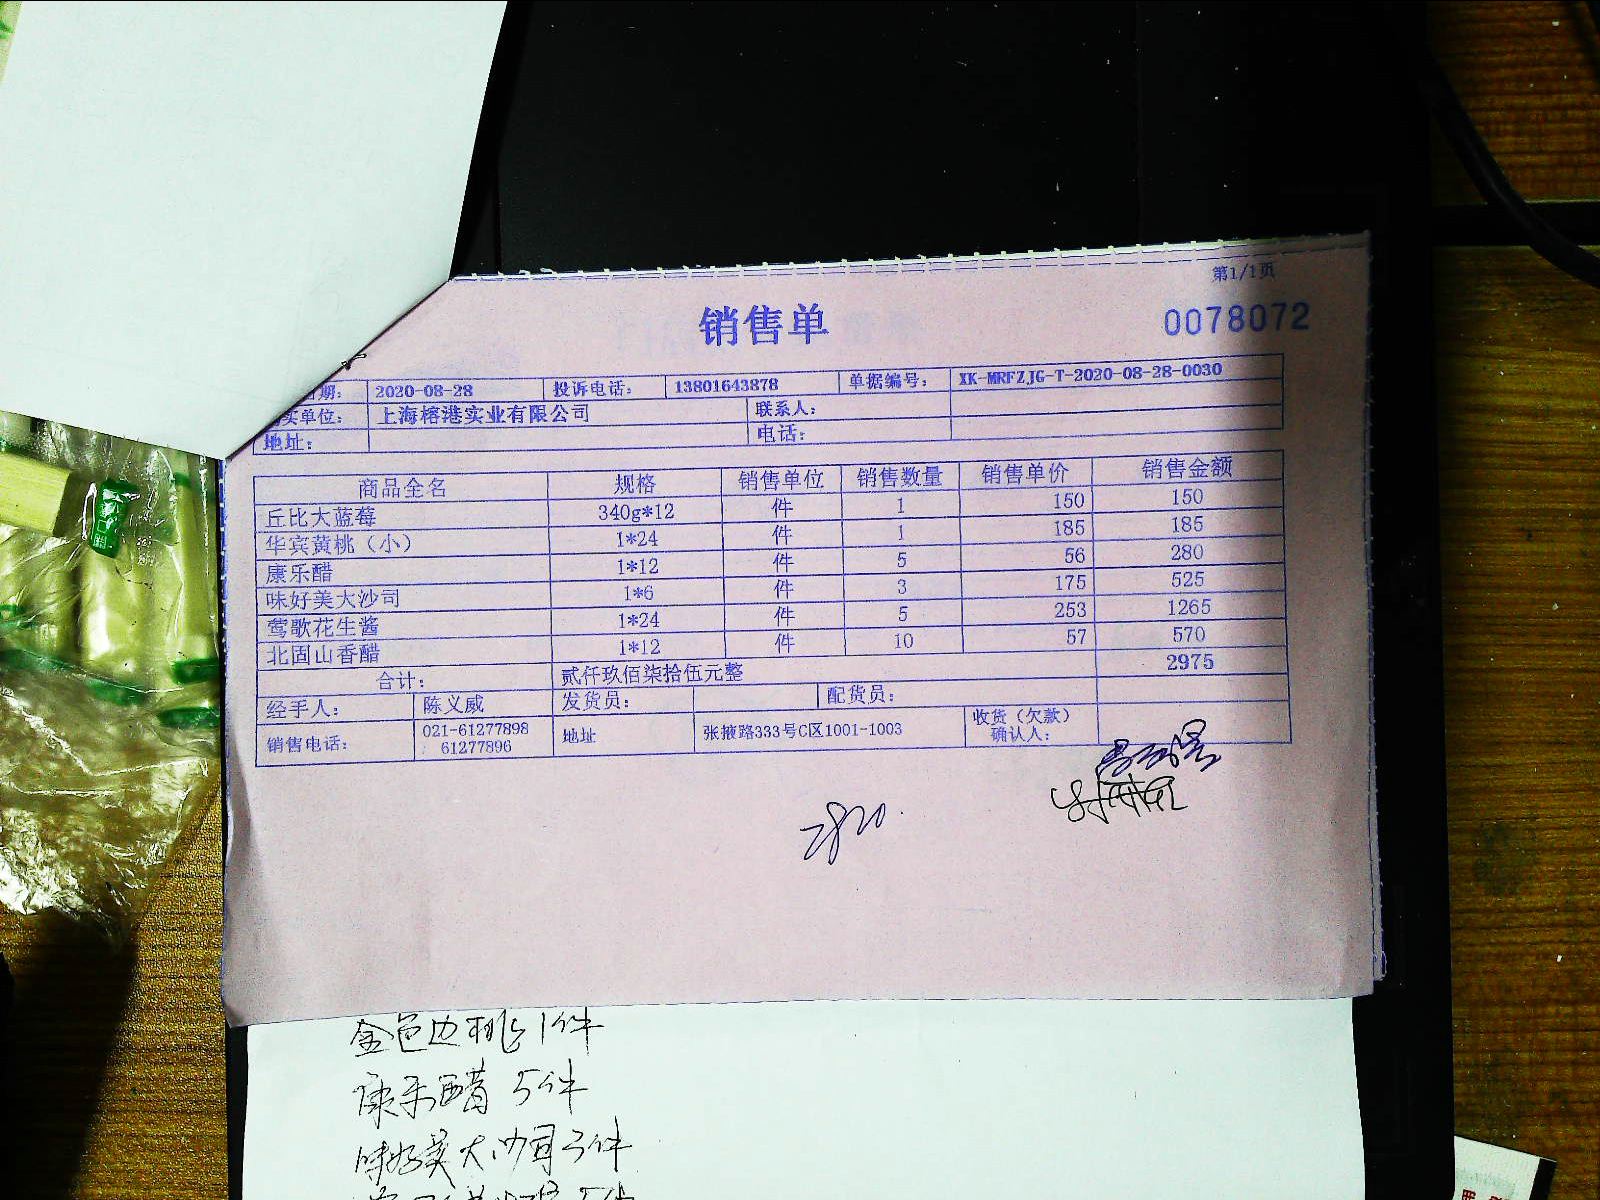 第1/1页
销售单
0078072
期: 2020-08-28 投诉电话: 13801643878 单据编号: XK-MRFZJG-T-2020-08-28-0030
买单位: 上海榕港实业有限公司 联系人:
地址: 电话:
商品全名 规格 销售单位 销售数量 销售单价 销售金额
丘比大蓝莓 340g*12 件 1 150 150
华宾黄桃（小） 1*24 件 1 185 185
康乐醋 1*12 件 5 56 280
味好美大沙司 1*6 件 3 175 525
莺歌花生酱 1*24 件 5 253 1265
北固山香醋 1*12 件 10 57 570
合计: 贰仟玖佰柒拾伍元整 2975
经手人: 陈义威 发货员: 配货员:
销售电话: 021-61277898 地址 张掖路333号C区1001-1003 收货（欠款）
: 61277896 确认人:
2820.
金色边桃 1件
康乐醋 5件
味好美大沙司 3件